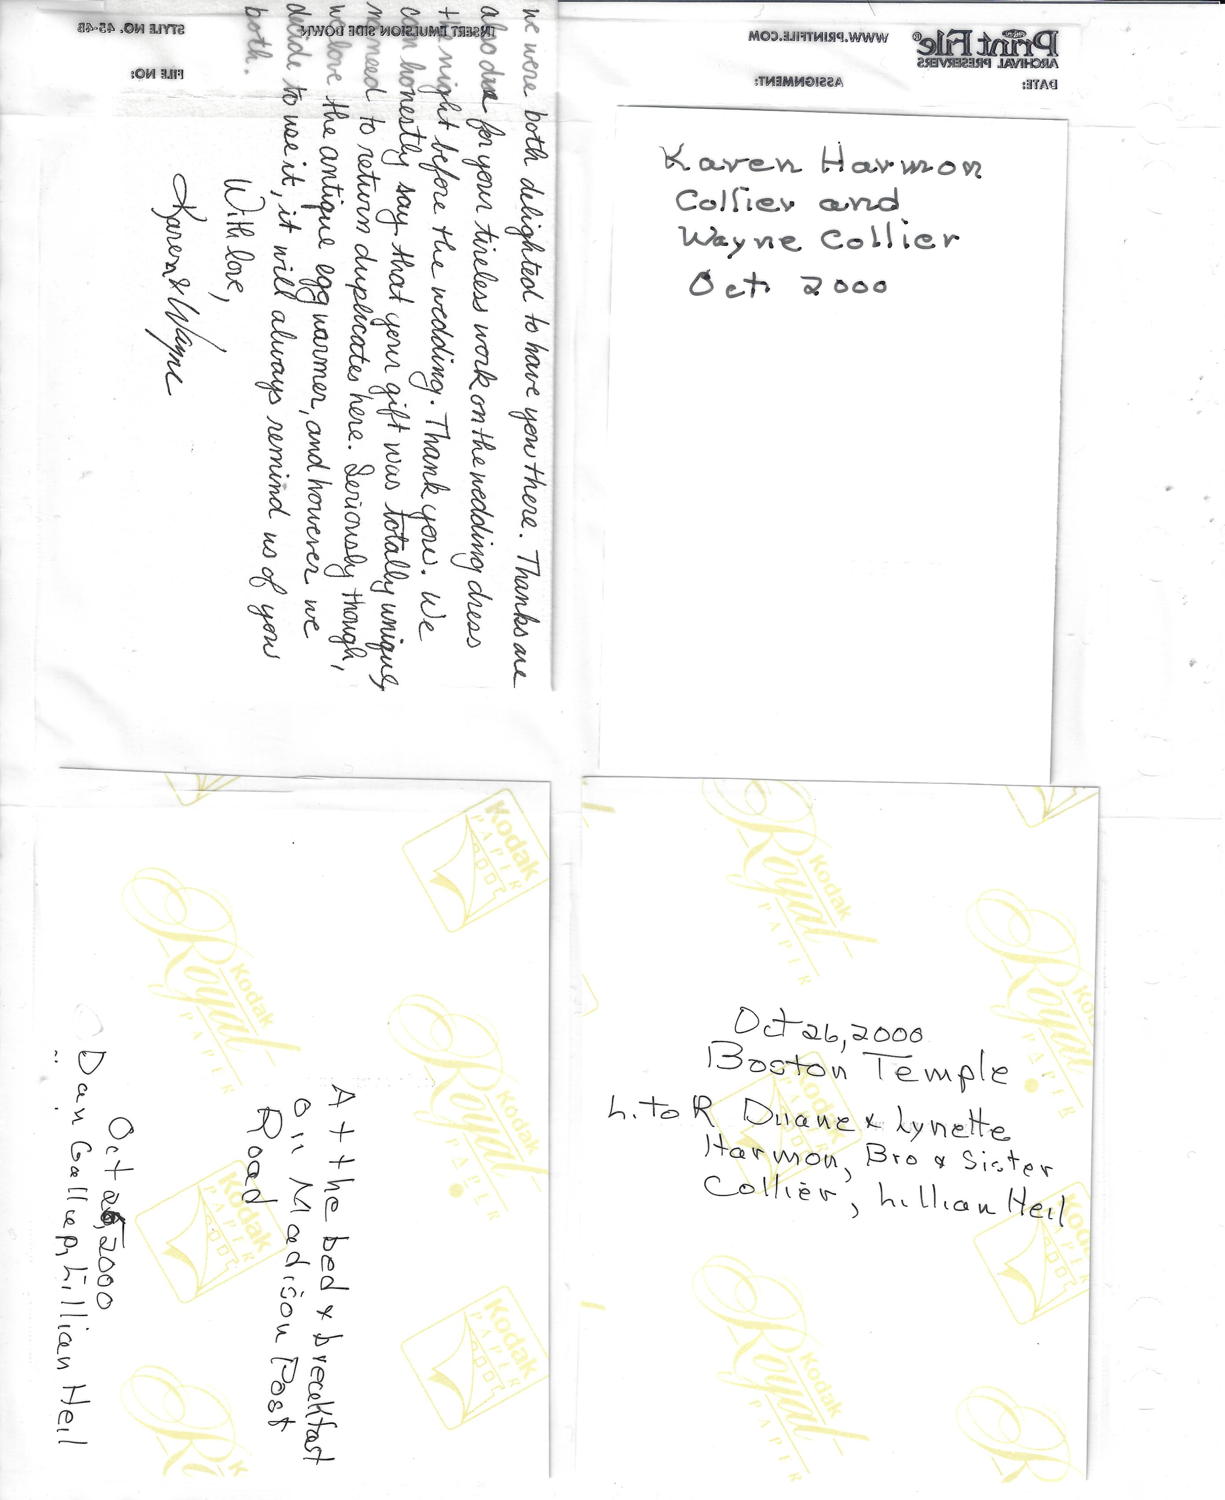 STYLE NO. 45-4B
INSERT EMULSION SIDE DOWN
WWW.PRINTFILE.COM
Print File®
ARCHIVAL PRESERVERS
FILE NO:
ASSIGNMENT:
DATE:
we were both delighted to have you there. Thanks are
also due for your tireless work on the wedding dress
the night before the wedding. Thank you. We
can honestly say that your gift was totally unique,
no need to return duplicates here. Seriously though,
we love the antique egg warmer, and however we
decide to use it, it will always remind us of you
both.
With love,
Karen & Wayne
Karen Harmon
Collier and
Wayne Collier
Oct. 2000
At the bed & breakfast
on Madison Post
Road
Oct 26, 2000
Dan Gallup, Lillian Heil
Kodak
PAPER
Kodak
Royal
PAPER
Kodak
Royal
PAPER
Oct 26, 2000
Boston Temple
L. to R Duane & Lynette
Harmon, Bro & Sister
Collier, Lillian Heil
Kodak
Royal
PAPER
Kodak
Royal
PAPER